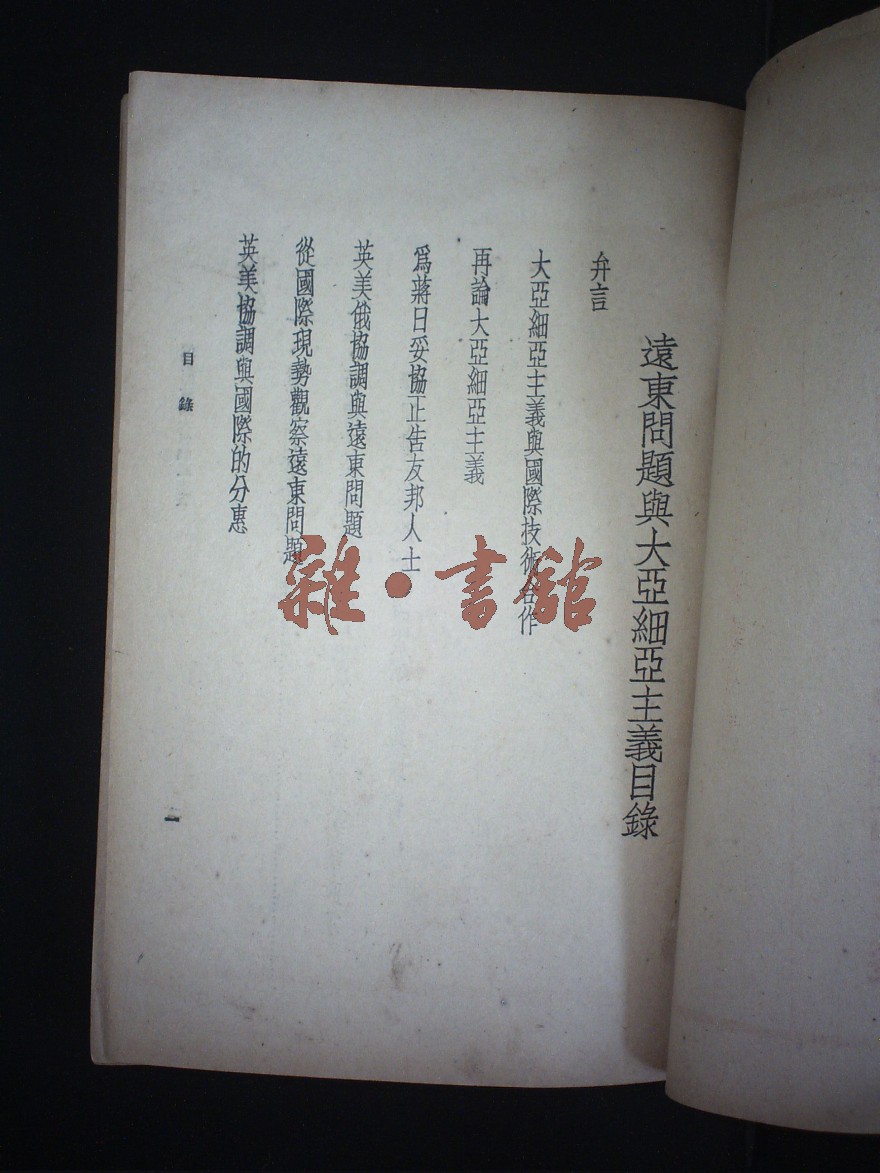 遠東問題與大亞細亞主義目錄
弁言
大亞細亞主義與國際技術合作
再論大亞細亞主義
爲蔣日妥協正告友邦人士
英美俄協調與遠東問題
從國際現勢觀察遠東問題
英美協調與國際的分惠
目錄
一
雜·書館